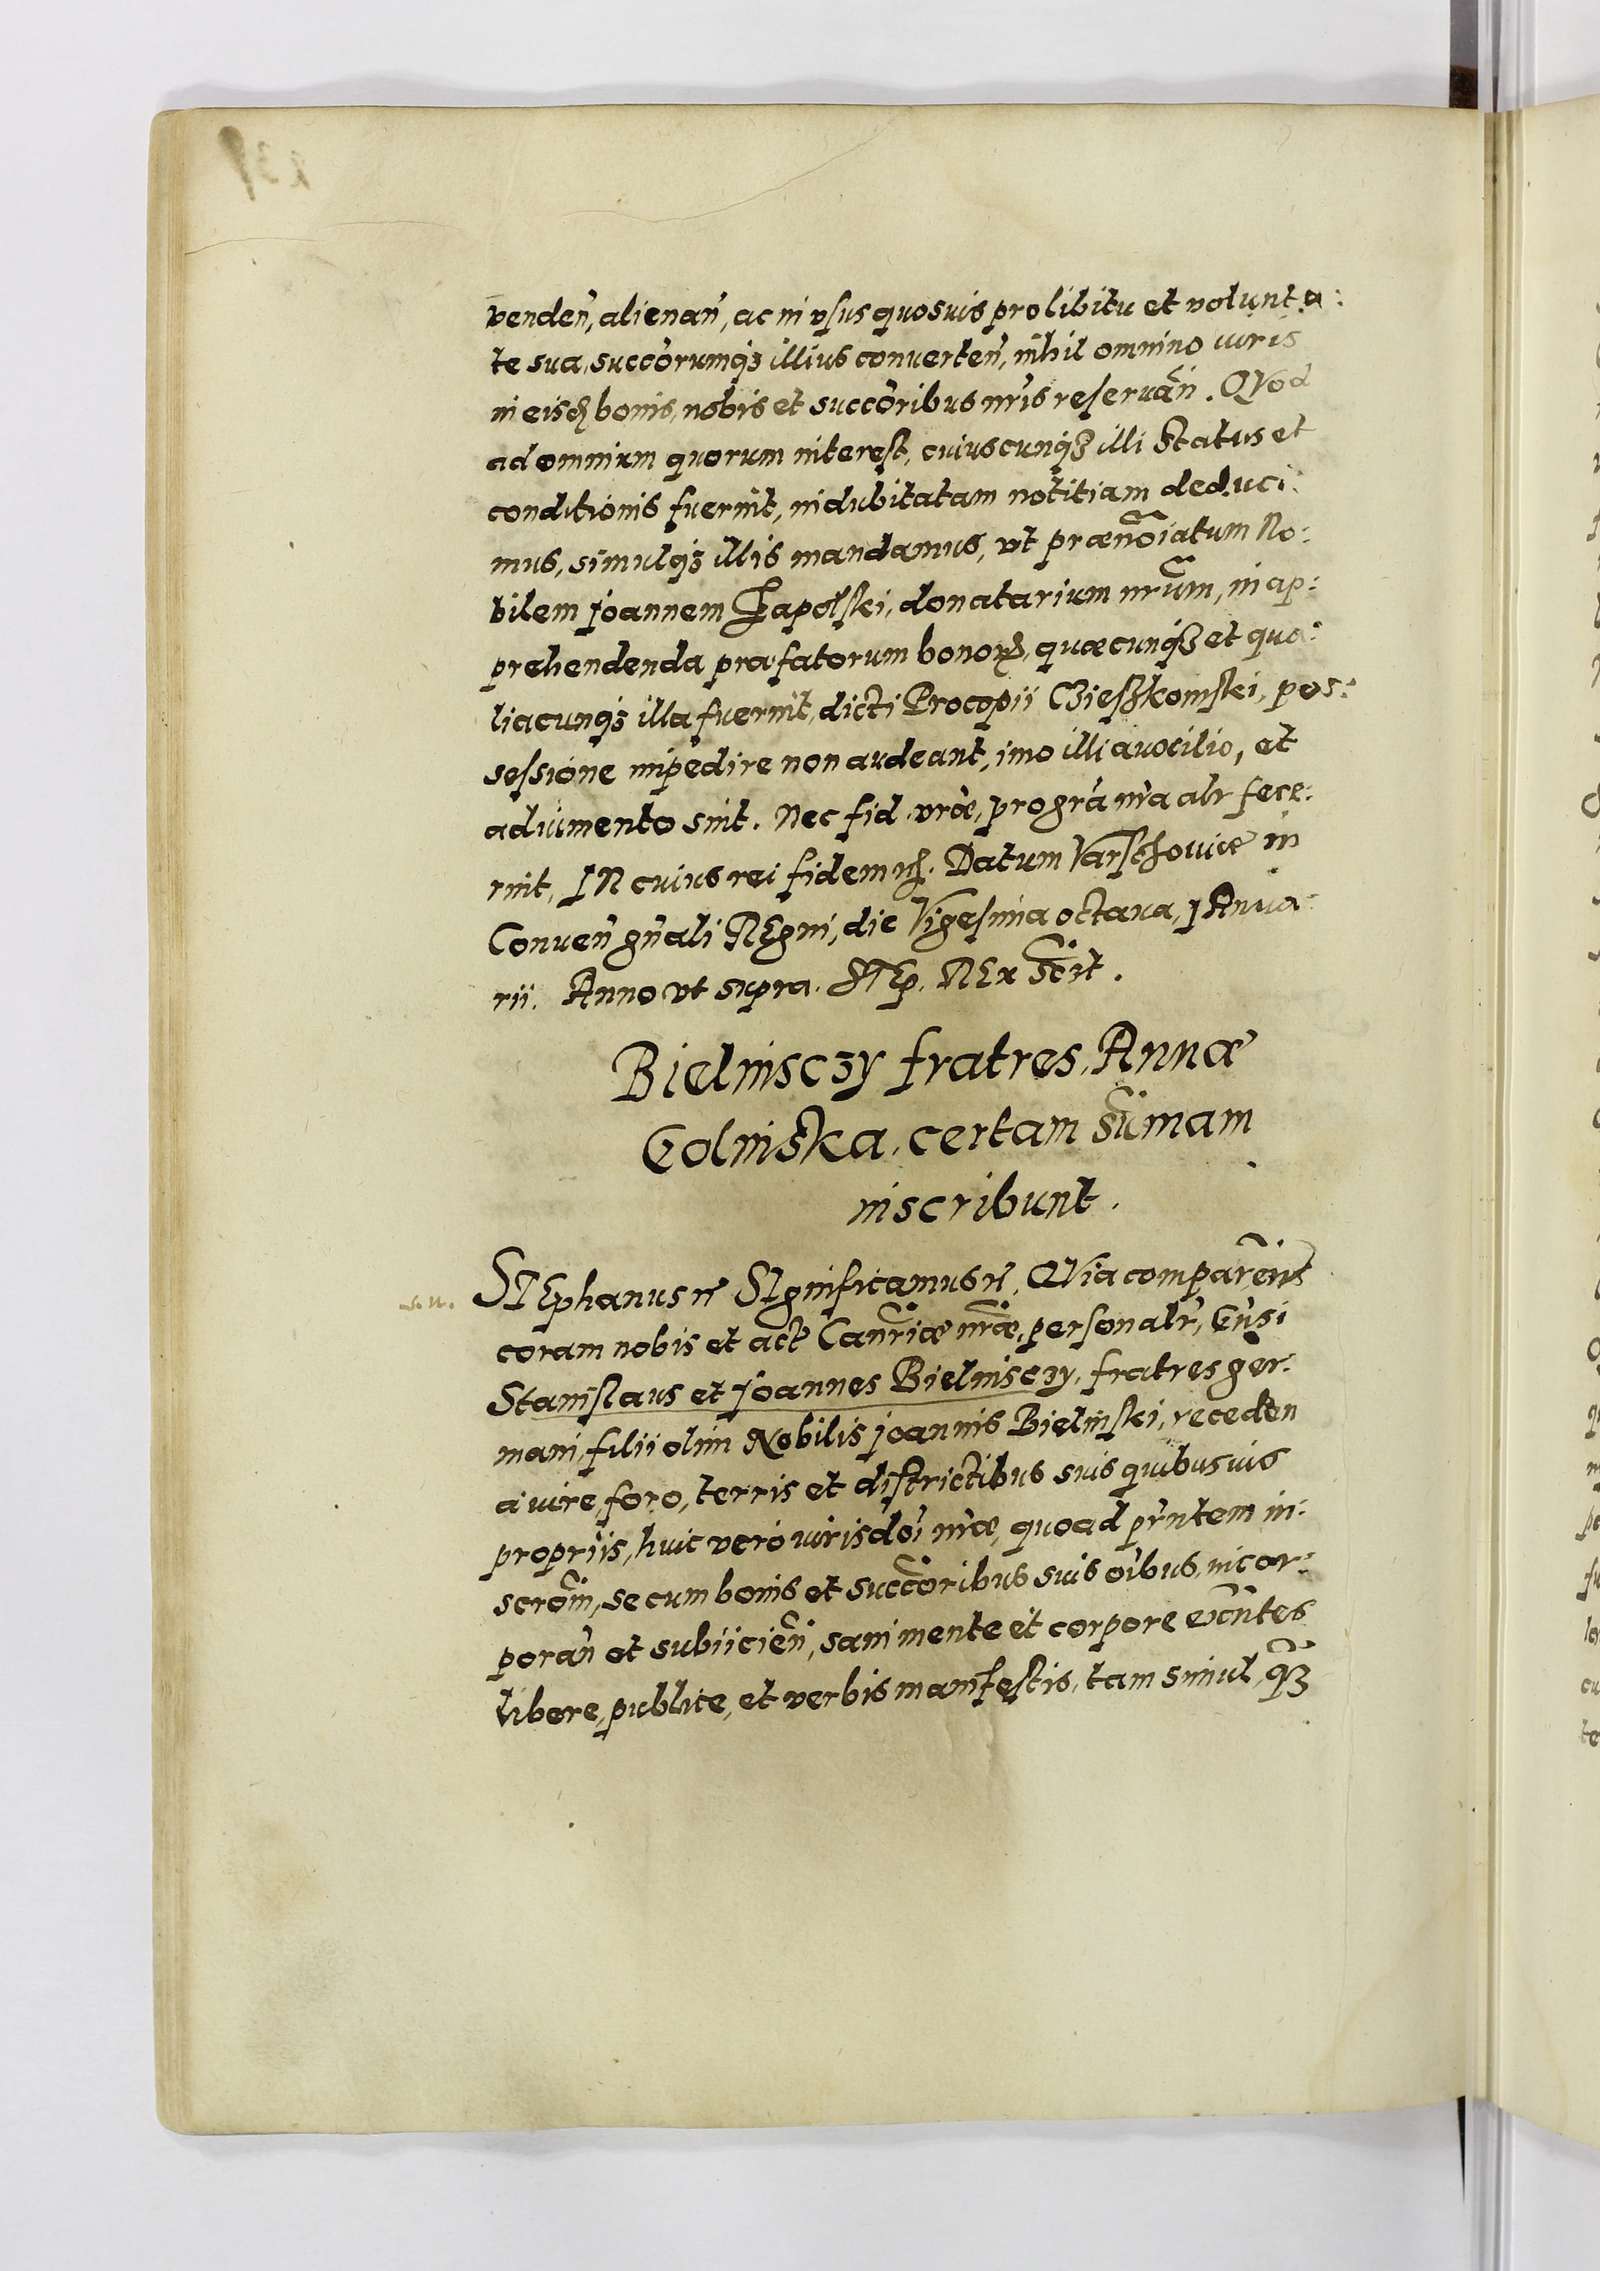 venden̄, alienan̄, ac in vsus quosuis pro libitu et volunta:
te sua, succōrumq₃ illius conuerten̄, nihil omnino iuris
in eisd bonis, nobis et succōribus nr̄is reseruan̄. QVod
ad omnium quorum interest, cuiuscunq₃ illi status et
conditionis fuerint, indubitatam notitiam deduci:
mus, simulq₃ illis mandamus, vt prænōiatum No:
bilem Joannem Łapolski, donatarium nr̄um, in ap:
prehendenda præfatorum bonoꝝ, quæcunq₃ et qua:
liacunq₃ illa fuerint, dicti Procopii Czieszkowski, pos:
sessione impedire non audeant, imo illi auxilio, et
adiumento sint. Nec fid. vr̄æ, pro gr̄a nr̄a alr̄ fece:
rint, IN cuius rei fidem Datum Varschouiæ in
Conuen̄ gn̄ali REgni, die Vigesima octaua, JAnua:
rii. Anno vt supra. STEp. REx
Bielinsczy fratres, Annæ
Golinska, certam sūmam
inscribunt.
STEphanus SIgnificamus QVia comparen̄ts
coram nobis et act Can̄riæ nr̄æ, personalr̄, Gn̄si
Stanislaus et Joannes Bielinsczy, fratres ger:
mani, filii olim Nobilis Joannis Bielinski, receden
a iure, foro, terris et districtibus suis quibusuis
propriis, huic vero iurisdōi nr̄æ, quoad pr̄ntem in:
scrōm, se cum bonis et succōribus suis oibus, incor:
poran̄ et subiicien̄, sani mente et corpore exn̄tes
libere, publice, et verbis manifestis, tam simul, q̄₃